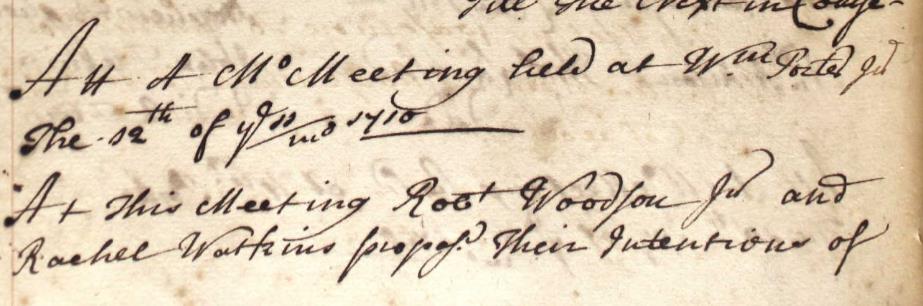 Till The Next in Course
Att A Mo Meeting held at Wm Porter Jur
The 12th of ye 11/mo 1710
At This Meeting Robt Woodson Jur and
Rachel Watkins proposd Their Intentions of